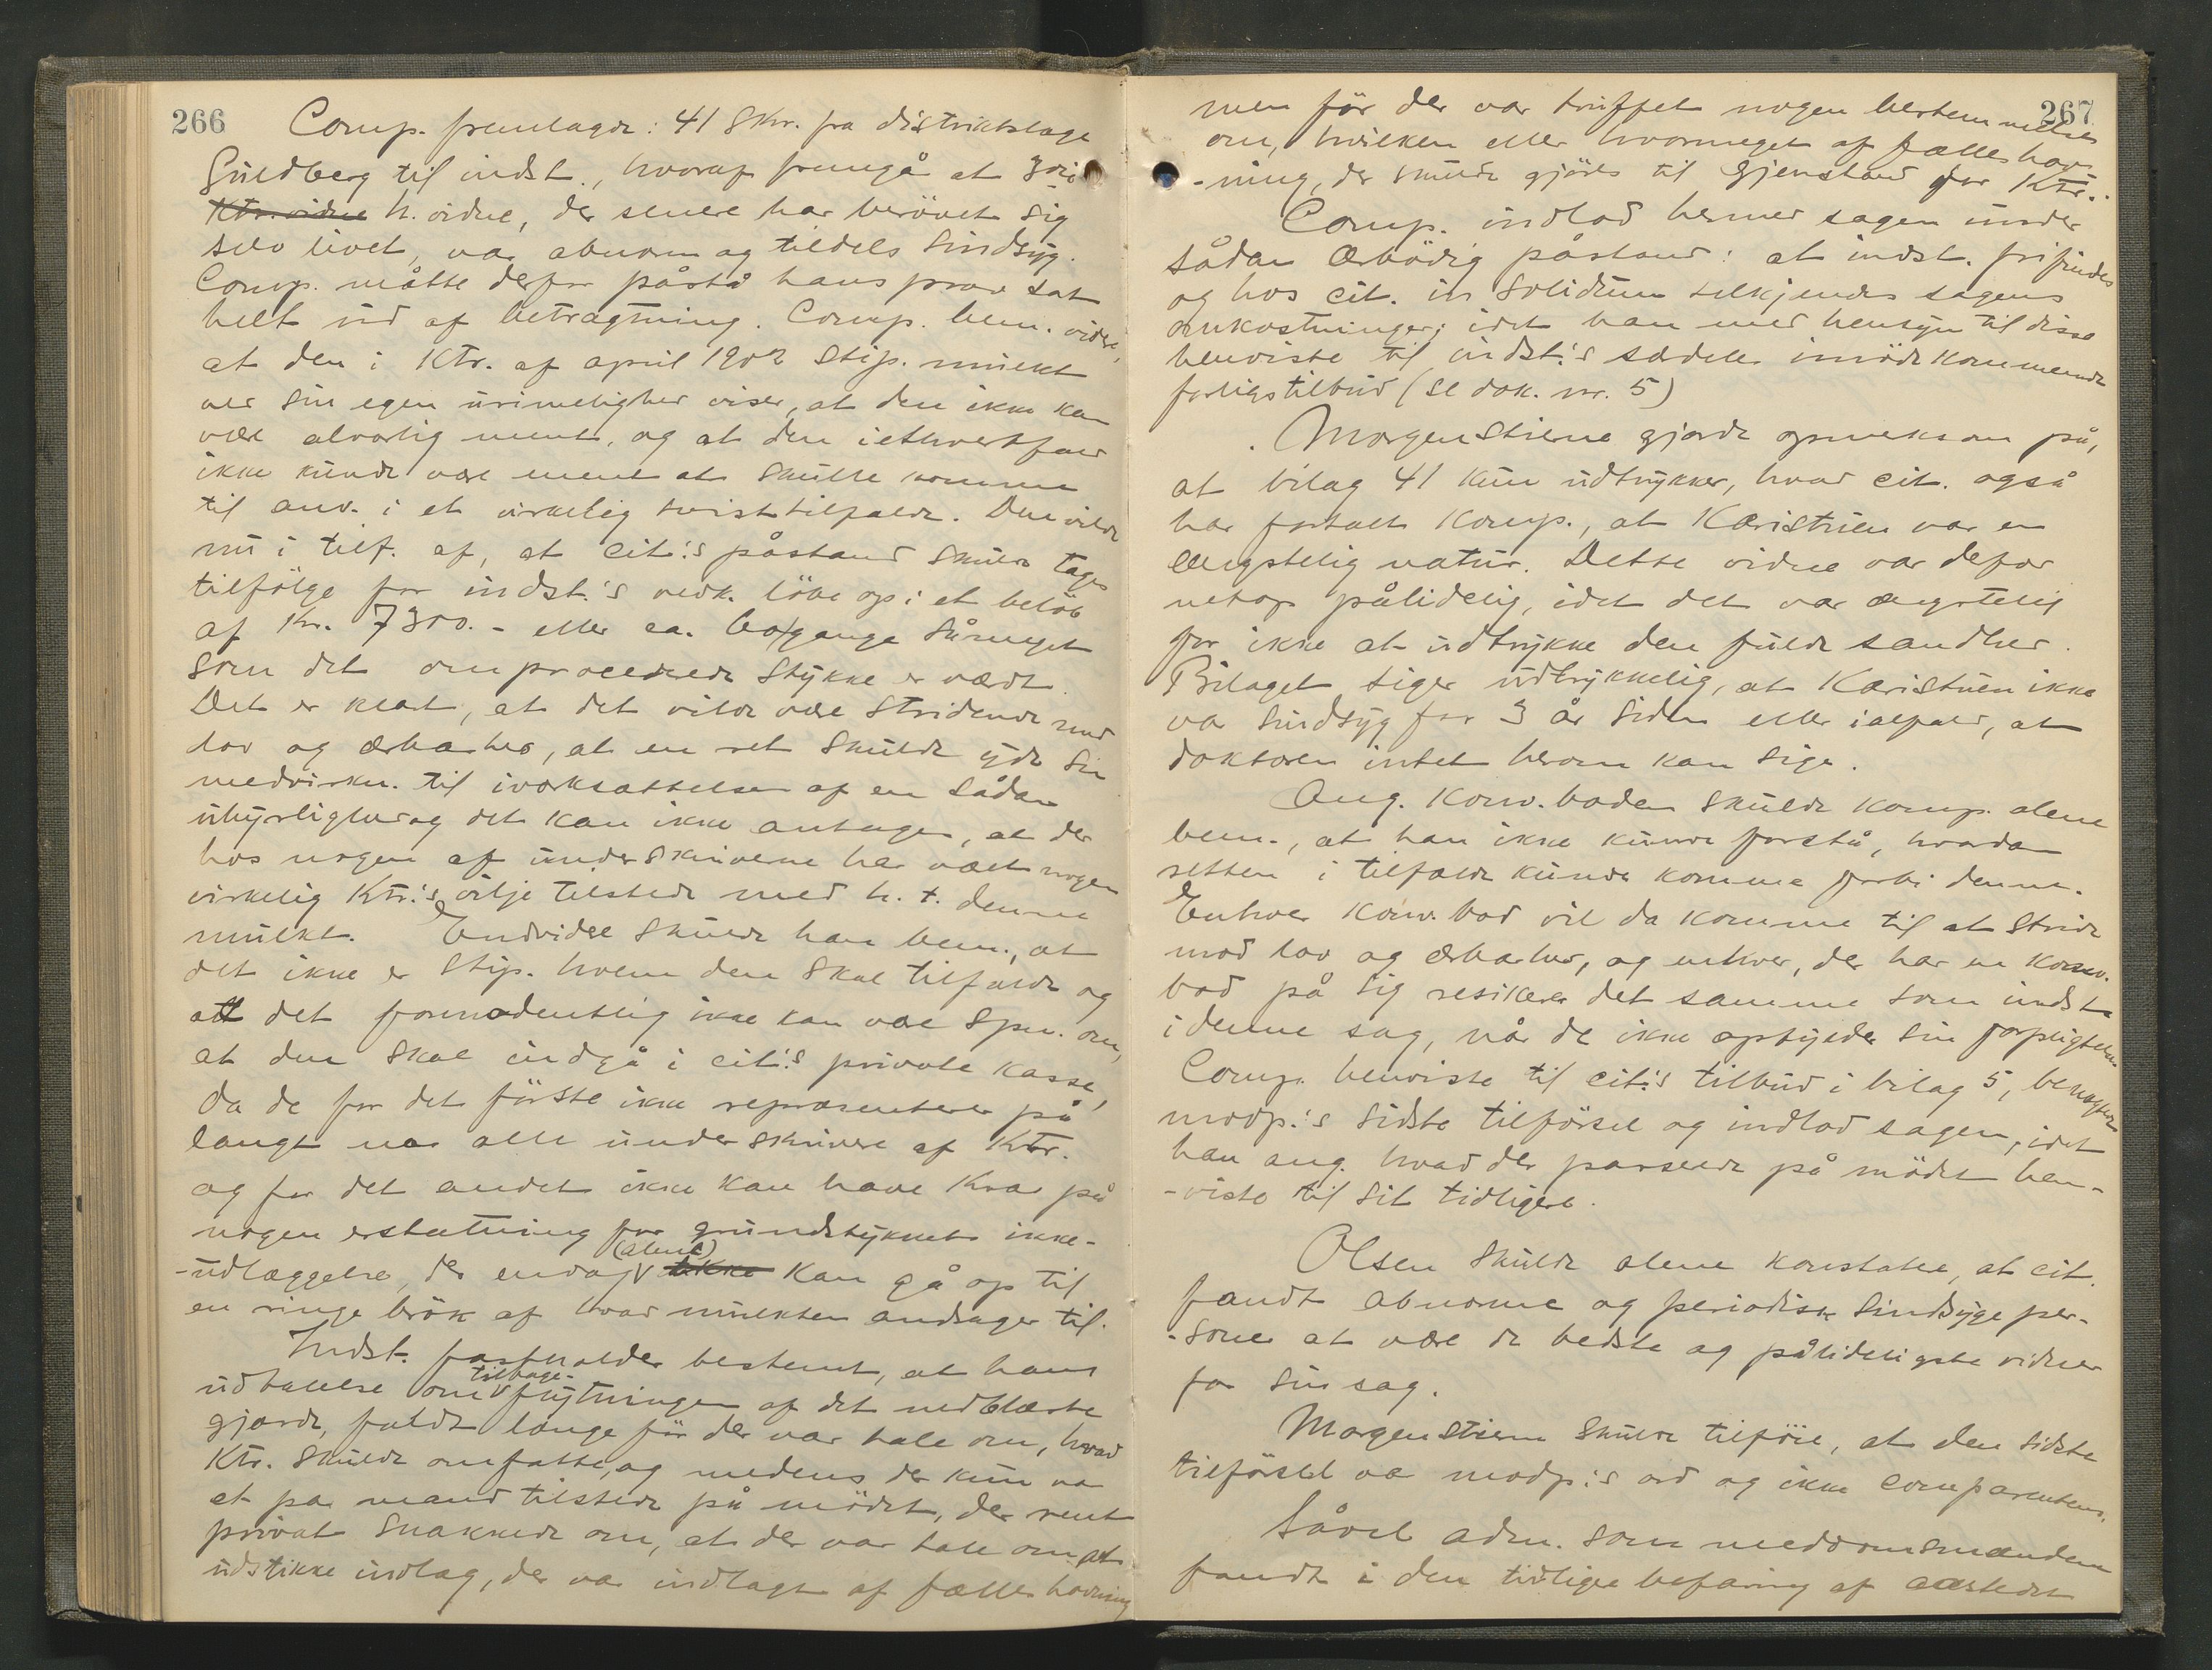 266
Comp. fremlagde: 41 Skr. fra distriktslæge
Guldberg til indst., hvoraf fremgå at 3die
Ktr.vidne h. vidne, der senere har berövet sig
selv livet, var abnorm og tildels Sindsyg.
Comp. måtte derfor påstå hans prov sat
helt ud af betragtning. Comp. bem. videre,
at den i Ktr. af april 1902 stip. mulkt
ver sin egen urimelighed viser, at den ikke kan
være alvorlig ment, og at den i ethvertfald
ikke kunde være ment at skulle komme
til anv. i et virkelig tvisttilfælde. Den vilde
nu i tilf. af, at cit.'s påstand skulde tages
tilfölge for indst.'s vedk. löbe op i et belöb
af Kr. 7300.- eller ca. gange såmeget
som det omprocederede Stykke er værdt.
Det er klart, at det vilde være stridende mod
lov og ærbarhed, at en ret skulde yde sin
medvirkn. til iværksættelsen af en sådan
uhyrlighed og det kan ikke antages, at der
hos nogen af underskriverne har været nogen
virkelig Ktr.'s vilje tilstede med h. t. denne
mulkt. Endvidere skulde han bem., at
det ikke er stip. hvem den skal tilfalde og
att det formodentlig ikke kan være Spm. om,
at den skal indgå i cit.'s private kasse,
da de for det förste ikke repræsenterer på
langt nær alle underskrivere af Ktr.
og for det andet ikke kan have Krav på
nogen erstatning for grundstykkets ikke-
-udlæggelse, der endog (alene) ikke kan gå op til
en ringe brök af hvad mulkten andrager til.
Indst. fastholder bestemt, at hans
udtalelse om tilbage- flytningen af det nedblæste
gjærde, faldt længe för der var tale om, hvad
Ktr. skulde omfatte, og medens der kun var
et par mand tilstede på mödet, der rent
privat snakkede om, at der var tale om at
udstikke indlæg, der var indlagt af fælles havning
267
men för der var truffet nogen bestemmelse
om, hvilken eller hvormeget af fælles hav-
-ning, der skulde gjöres til Gjenstand for Ktr.
Comp. indlod hermed sagen under
sådan Ærbödig påstand: at indst. frifindes
og hos cit. in solidum tilkjendes sagens
omkostninger; idet han med hensyn til disse
henviste til indst.'s særdeles imödekommende
forligstilbud (se dok. nr. 5)
Morgenstierne gjorde opmerksom på,
at bilag 41 kun udtrykker, hvad cit. også
har fortalt Komp., at Karistuen var en
ængstelig natur. Dette vidne var derfor
netop pålidelig, idet det var ængstelig
for ikke at udtrykke den fulde sandhed.
Bilaget siger udtrykkelig, at Karistuen ikke
var sindsyg for 3 år siden eller ialfald, at
doktoren intet herom kan sige.
Ang. Konv.boden skulde Komp. alene
bem., at han ikke kunde forstå, hvordan
retten i tilfælde kunde komme forbi denne.
Enhver Konv.bod vil da komme til at stride
mod lov og ærbarhed, og enhver, der har en Konv.
bod på sig resikerer det samme som indst.
i denne sag, når de ikke opfylder sin forpligtelse.
Comp. henviste til cit.'s tilbud i bilag 5, benægtede
modp.'s sidste tilförsel og indlod sagen, idet
han ang. hvad der passerede på mödet hen-
-viste til sit tidligere.
Olsen skulde alene konstatere, at cit.
fandt abnorme og periodisk sindsyge per-
-soner at være de bedste og pålideligste vidner
for sin sag.
Morgenstierne skulde tilföie, at den sidste
tilförsel var modp.'s ord og ikke comparentens.
Såvel adm. som meddomsmændene
fandt i den tidligere befaring af aastedet